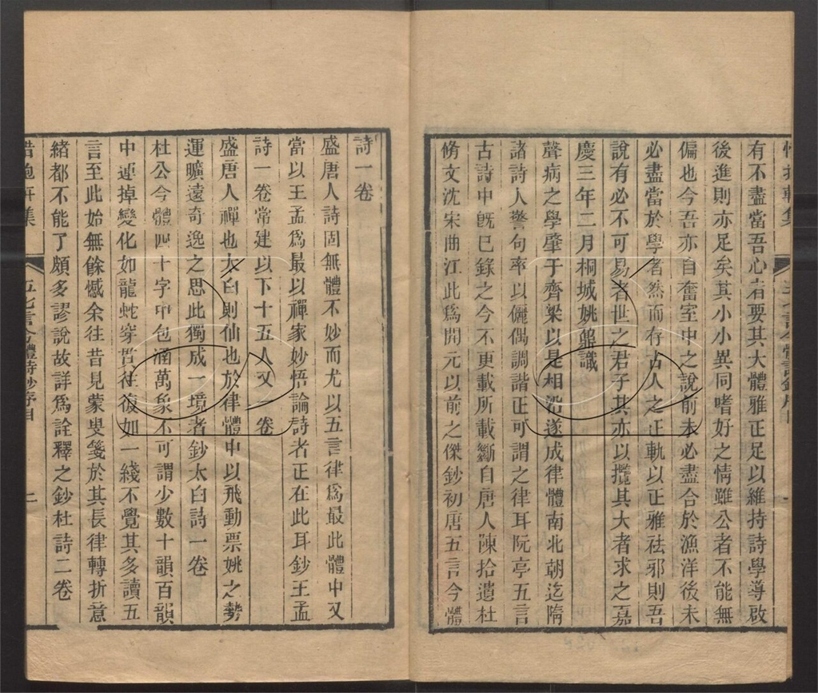 惜抱軒集　五七言今體詩鈔序目　一
有不盡當吾心者要其大體雅正足以維持詩學導啟
後進則亦足矣其小小異同嗜好之情雖公者不能無
偏也今吾亦自奮室中之說前未必盡合於漁洋後未
必盡當於學者然而存古人之正軌以正雅祛邪則吾
說有必不可易者世之君子其亦以攬其大者求之嘉
慶三年二月桐城姚鼐識
聲病之學肇于齊梁以是相沿遂成律體南北朝迄隋
諸詩人警句率以儷偶調諧正可謂之律耳阮亭五言
古詩中既已錄之今不更載所載斷自唐人陳拾遺杜
脩文沈宋曲江此為開元以前之傑鈔初唐五言今體
詩一卷
盛唐人詩固無體不妙而尤以五言律為最此體中又
當以王孟為最以禪家妙悟論詩者正在此耳鈔王孟
詩一卷常建以下十五人又一卷
盛唐人禪也太白則仙也於律體中以飛動票姚之勢
運曠遠奇逸之思此獨成一境者鈔太白詩一卷
杜公今體四十字中包涵萬象不可謂少數十韻百韻
中運掉變化如龍蛇穿貫往復如一綫不覺其多讀五
言至此始無餘憾余往昔見蒙叟箋於其長律轉折意
緒都不能了頗多謬說故詳為詮釋之鈔杜詩二卷
惜抱軒集　五七言今體詩鈔序目　二